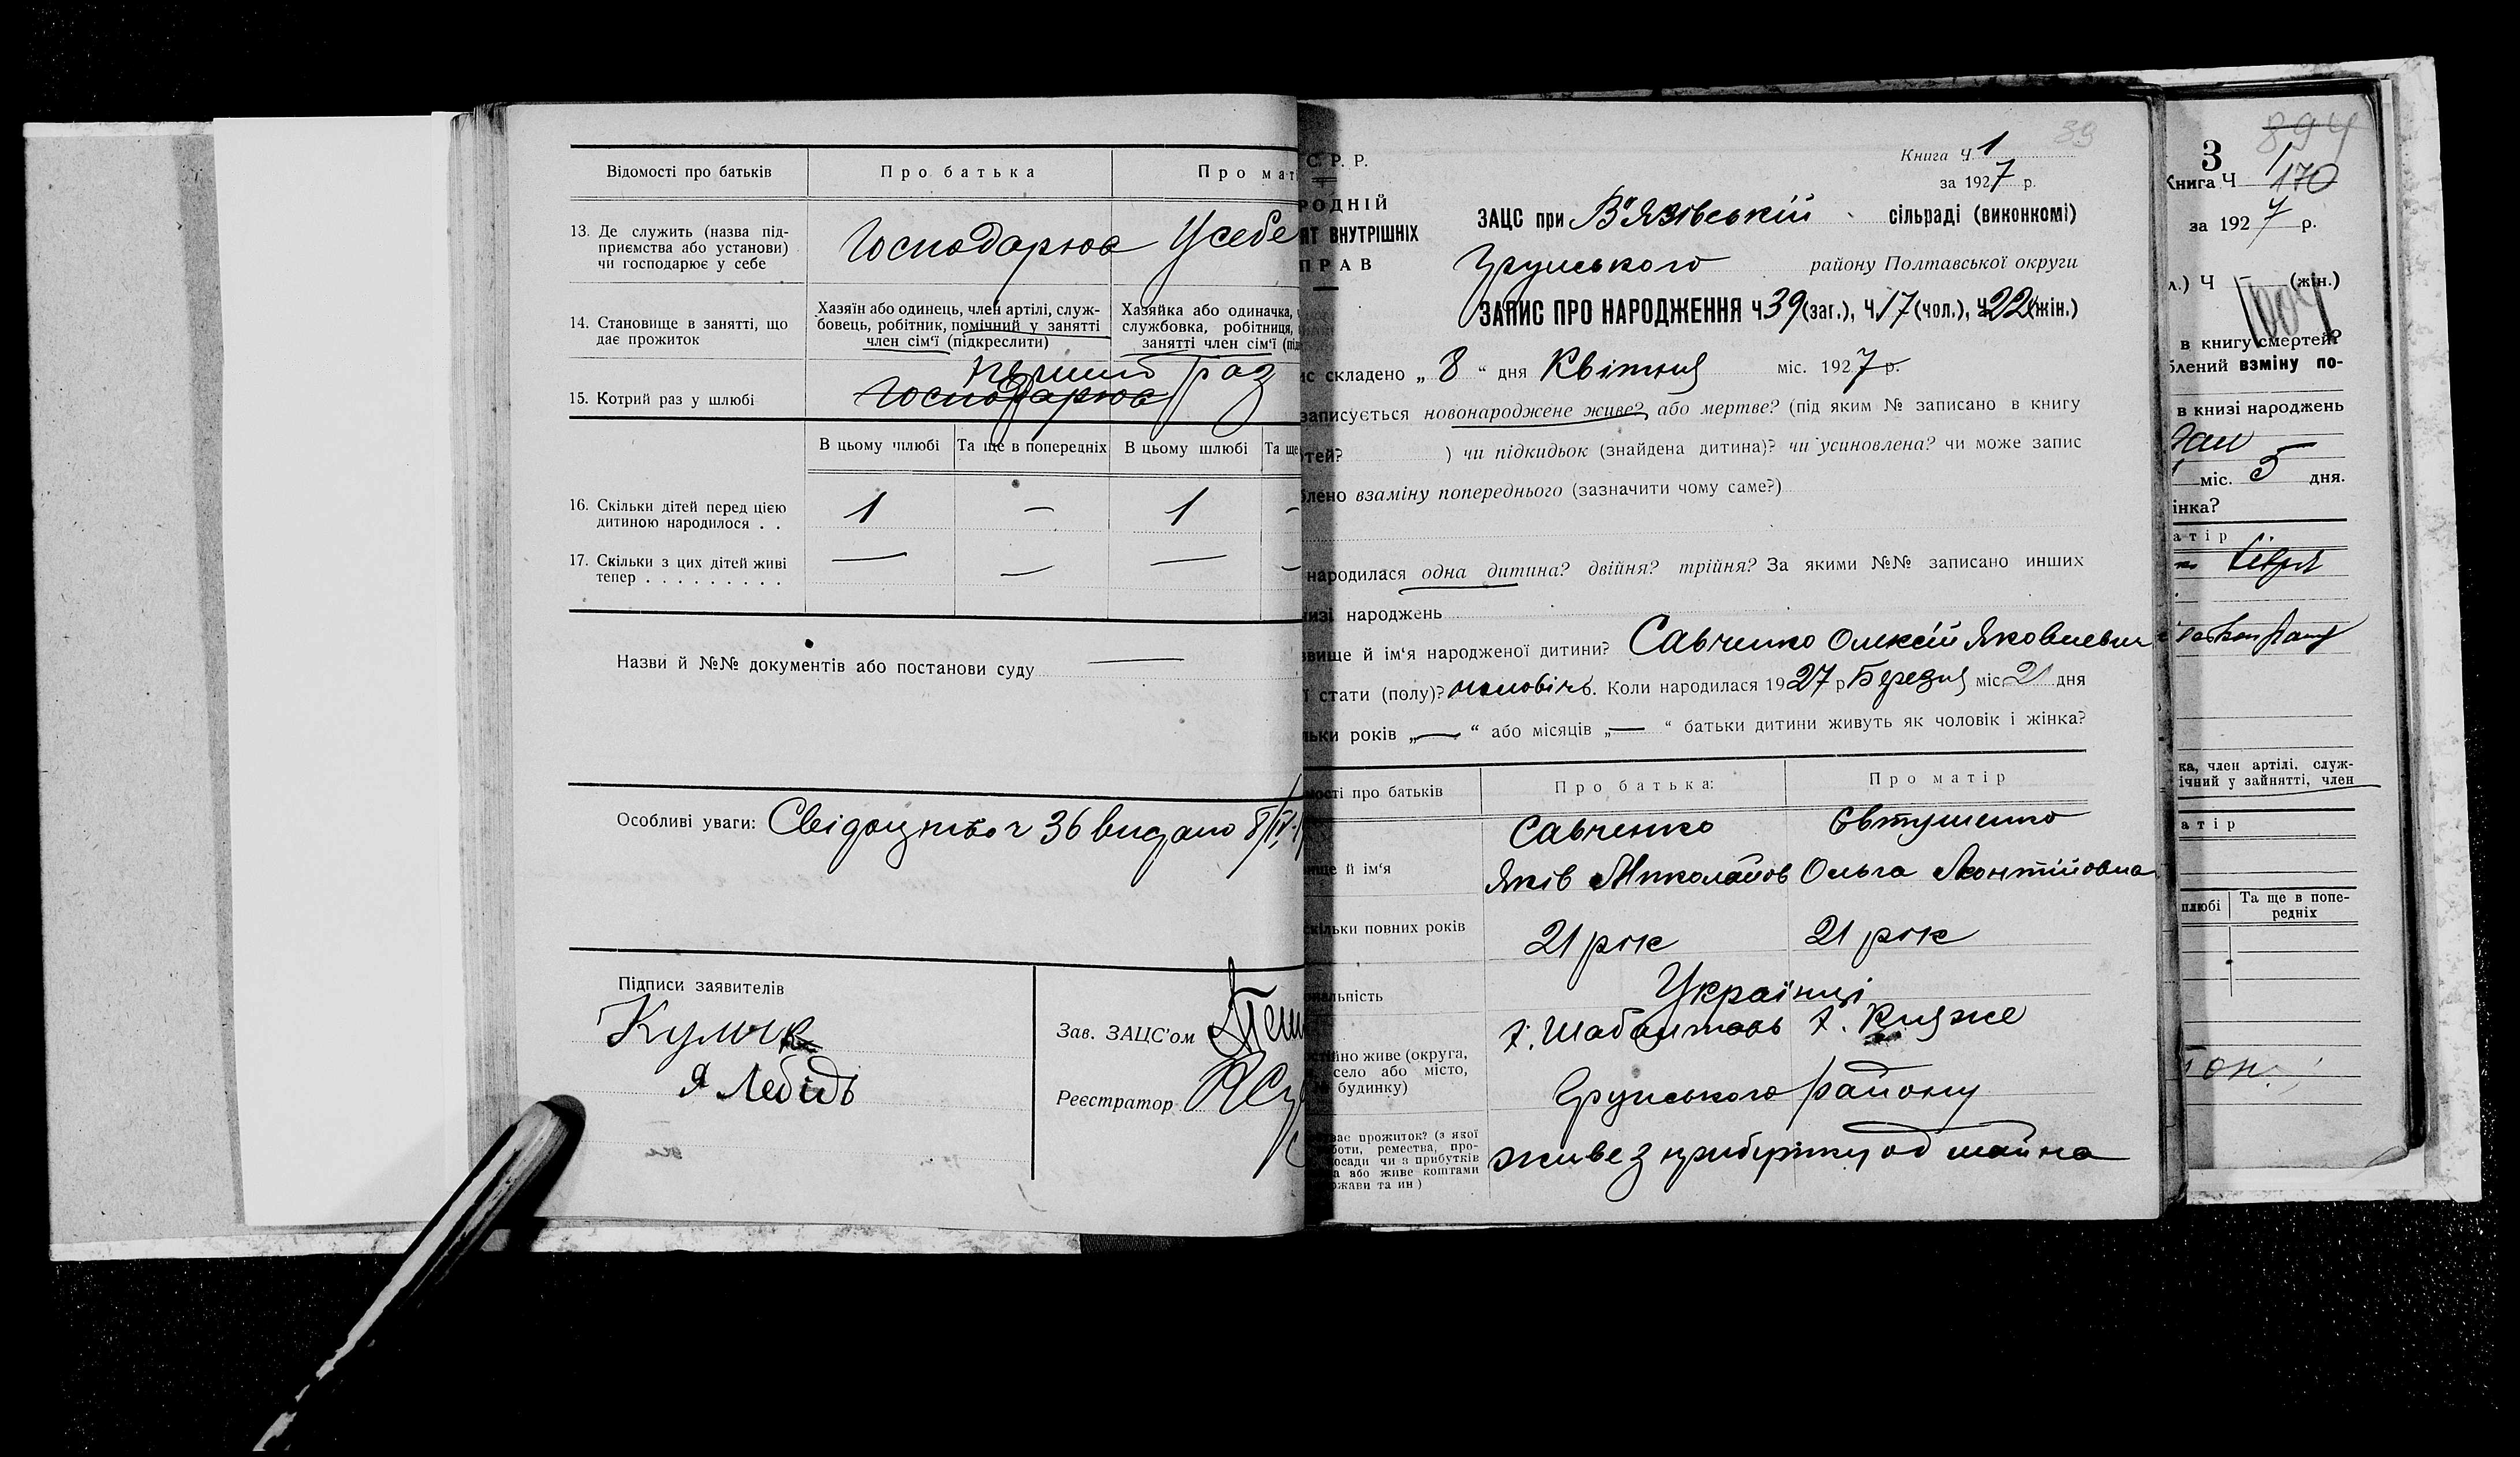 Відомості про батьків
Про батька
Про маті
13. Де служить (назва під-
приємства або установи)
чи господарює у себе
Господарює Усебе
14. Становище в занятті, що
дає прожиток
Хазяїн або одинець, член артілі, служ-
бовець, робітник, помічний у занятті
член сім'ї (підкреслити)
Хазяйка або одиначка,
службовка, робітниця,
занятті член сім'ї
15. Котрий раз у шлюбі
перший раз
Господарює
В цьому шлюбі
Та ще в попередніх
В цьому шлюбі
Та ще
16. Скільки дітей перед цією
дитиною народилося . .
1 — 1 —
17. Скільки з цих дітей живі
тепер . . . . . . . . .
— — — —
Назви й №№ документів або постанови суду —
Особливі уваги: Свідоцтво ч 36 видано 8/IV
Підписи заявителів
Кулик
Я Лебідь
Зав. ЗАЦС'ом
Реєстратор
39
С. Р. Р.
РОДНІЙ
ЯТ ВНУТРІШНІХ
ПРАВ
Книга Ч 1
за 1927 р.
ЗАЦС при В'Язівській сільраді (виконкомі)
Грунського району Полтавської округи
ЗАПИС ПРО НАРОДЖЕННЯ Ч 39 (заг.), Ч 17 (чол.), Ч 22 (жін.)
ис складено „ 8 “ дня Квітня міс. 1927 р.
записується новонароджене живе? або мертве? (під яким № записано в книгу
ртей? ) чи підкидьок (знайдена дитина)? чи усиновлена? чи може запис
блено взаміну попереднього (зазначити чому саме?)
народилася одна дитина? двійня? трійня? За якими №№ записано инших
низі народжень
звище й ім'я народженої дитини? Савченко Олексій Яковлевич
ї стати (полу)? чоловіч. Коли народилася 1927 р Березня міс. 2 дня
льки років „—“ або місяців „—“ батьки дитини живуть як чоловік і жінка?
мості про батьків
Про батька:
Про матір
вище й ім'я
Савченко
Яків Миколайов
Євтушенко
Ольга Леонтійовна
скільки повних років
21 рік
21 рік
ональність
Українці
стійно живе (округа,
село або місто,
будинку)
х. Шабалтаєв
х. Княже
Грунського району
ває прожиток? (з якої
боти, ремества, про-
посади чи з прибутків
а або живе коштами
ржави та ин)
живе з прибутку од майна
894
3
Книга Ч 1
170
за 1927 р.
л.) Ч (жін.)
в книгу смертей?
блений взміну по-
в книзі народжень
міс. 5 дня.
інка?
атір
ка, член артілі, служ-
ічний у зайнятті, член
атір
шлюбі
Та ще в попе-
редніх